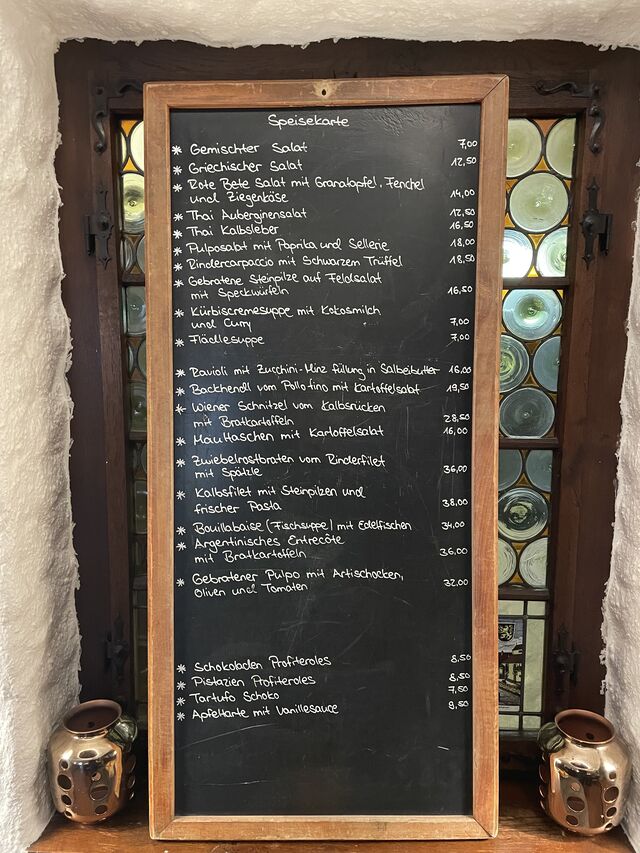 Speisekarte
* Gemischter Salat 7,00
* Griechischer Salat 12,50
* Rote Bete Salat mit Granatapfel, Fenchel
und Ziegenkäse 14,00
* Thai Auberginensalat 12,50
* Thai Kalbsleber 16,50
* Pulposalat mit Paprika und Sellerie 18,00
* Rindercarpaccio mit Schwarzem Trüffel 18,50
* Gebratene Steinpilze auf Feldsalat
mit Speckwürfeln 16,50
* Kürbiscremesuppe mit Kokosmilch
und Curry 7,00
* Flädlesuppe 7,00
* Ravioli mit Zucchini-Minz füllung in Salbeibutter 16,00
* Backhendl vom Pollo fino mit Kartoffelsalat 19,50
* Wiener Schnitzel vom Kalbsrücken
mit Bratkartoffeln 28,50
* Maultaschen mit Kartoffelsalat 16,00
* Zwiebelrostbraten vom Rinderfilet
mit Spätzle 36,00
* Kalbsfilet mit Steinpilzen und
frischer Pasta 38,00
* Bouillabaise (Fischsuppe) mit Edelfischen 34,00
* Argentinisches Entrecôte
mit Bratkartoffeln 36,00
* Gebratener Pulpo mit Artischocken,
Oliven und Tomaten 32,00
* Schokoladen Profiteroles 8,50
* Pistazien Profiteroles 8,50
* Tartufo Schoko 7,50
* Apfeltarte mit Vanillesauce 9,50